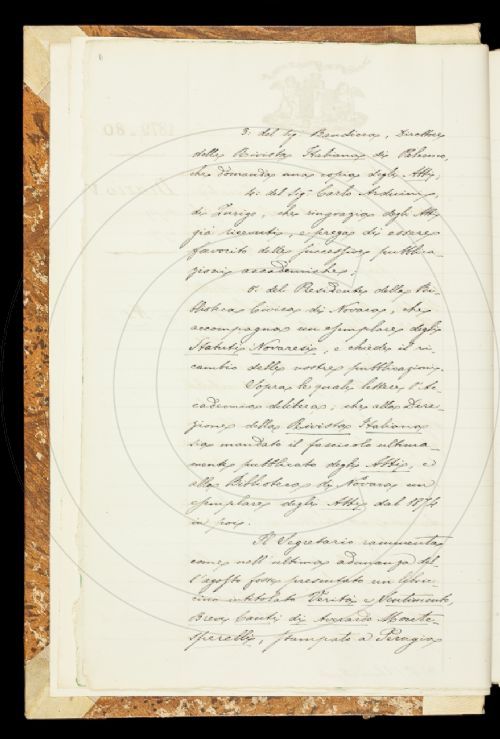 3. del Sig. Bandiera, Direttore
della Rivista Italiana di Palermo,
che domanda una copia degli Atti;
4. del Sig.r Carlo Arduini,
di Zurigo, che ringrazia degli Atti
già ricevuti, e prega di essere
favorito delle successive pubblica-
zioni accademiche;
5. del Presidente della Bi-
blioteca Civica di Novara, che
accompagna un esemplare degli
Statuti Novaresi, e chiede il ri-
cambio delle nostre pubblicazioni.
Sopra le quali lettere l'Ac-
cademia delibera, che alla Dire-
zione della Rivista Italiana
sia mandato il fascicolo ultima-
mente pubblicato degli Atti, e
alla Biblioteca di Novara un
esemplare degli Atti dal 1874
in poi.
Il Segretario rammenta
come nell'ultima adunanza del-
l'agosto fosse presentato un libric-
cino intitolato Verità e Sentimento,
Brevi Canti di Averardo Monte-
sperelli, stampato a Perugia